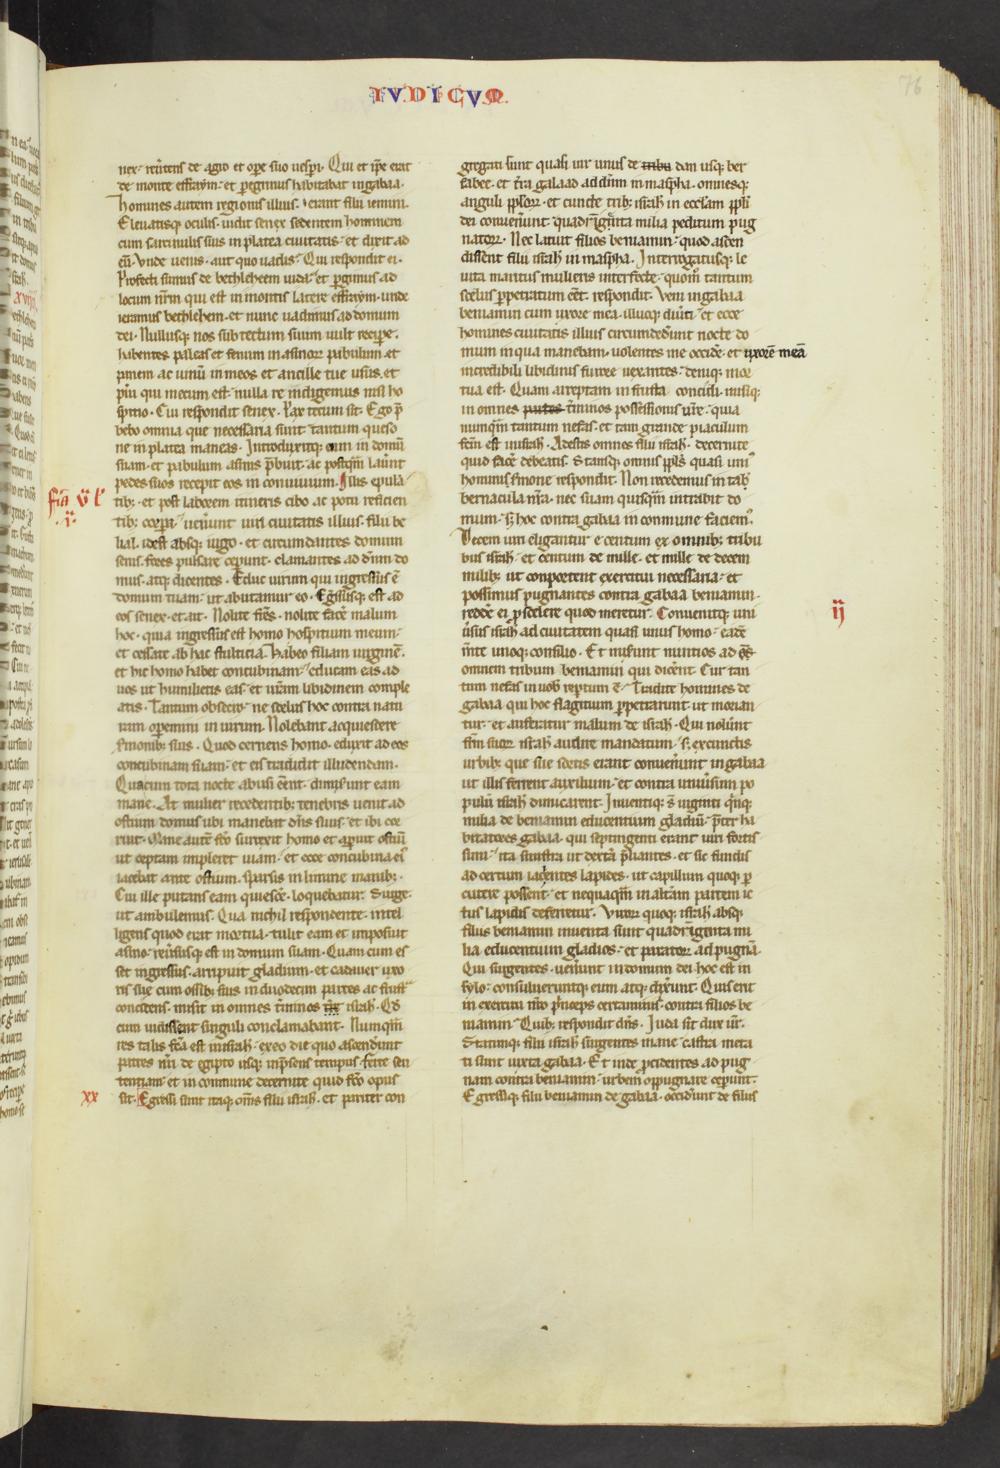 IVDICVM
76
nex. reu̅tens de agro et ope̅ suo uesp̅i. Qui et ip̅e erat
de monte effraym. et peg̅rinus habitabat in gabaa.
homines autem regionis illius. erant filii iemini.
Eleuatisq; oculis. uidit senex sedentem hominem
cum sarcinulis suis in platea ciuitatis. et dixit ad
eu̅. Vnde uenis. aut quo uadis. Qui respondit ei.
Profecti sumus de bethleheem iuda. et pergimus ad
locum nr̅m qui est in montis latere effraym. unde
ieramus bethlehem. et nunc uadimus ad domum
dei. Nullusq; nos sub tectum suum uult recipe̅.
habentes paleas et fenum in asinor̅ pabulum. et
panem ac uinu̅ in meos et ancille tue usus. et
pu̅i qui mecum est. nulla re indigemus nisi ho
spitio. Cui respondit senex. Pax tecum sit. Ego p̅
bebo omnia que necessaria sunt. tantum queso
ne in platea maneas. Introduxitq; eum in domu̅
suam. et pabulum asinis p̅buit. ac postq̅m lau̅unt
pedes suos recepit eos in conuiuium. Illis epula̅
tib;. et post laborem itineris cibo ac potu reficien
tib; corpa̅. uen̅unt uiri ciuitatis illius. filii be
lial. idest absq; iugo. et circumdantes domum
senis. fores pulsare cep̅unt. clamantes ad dn̅m do
mus. atq; dicentes. Educ uirum qui ingressus e̅
domum tuam. ut abutamur eo. Eg̅ssusq; est ad
eos senex. et ait. Nolite fr̅es. nolite face̅ malum
hoc. quia ingressus est homo hospitium meum.
et cessate ab hac stulticia. habeo filiam uirgine̅.
et hic homo habet concubinam. educam eas ad
uos ut humilietis eas. et ur̅am libidinem comple
atis. Tantum obsecro. ne scelus hoc contra natu
ram operemini in uirum. Nolebant acquiescere
s̅monib; suis. Quod cernens homo. eduxit ad eos
concubinam suam. et eis tradidit illudendam.
Qua cum tota nocte abusi ee̅nt. dimis̅unt eam
mane. At mulier recedentib; tenebris uenit ad
ostium domus ubi manebat dn̅s suus. et ibi cor
ruit. Mane aute̅ fc̅o surrexit homo et ap̅uit ostiu̅
ut ceptam impleret uiam. et ecce concubina ei᾽
iacebat ante ostium. sparsis in limine manib;.
Cui ille putans eam quiesce̅. loquebatur. Surge.
ut ambulemus. Qua nichil respondente. intel
ligens quod erat mortua. tulit eam et imposuit
asino. reu̅susq; est in domum suam. Quam cum es
set ingressus. arripuit gladium. et cadauer uxo
ris sue cum ossib; suis in duodecim partes ac frusta
concidens. misit in omnes t̅minos isrl̅. Qd̅
cum uidissent singuli conclamabant. Numqua̅m
res talis fc̅a est in isrl̅. ex eo die quo ascend̅unt
patres nr̅i de egipto usq; in p̅sens tempus. ferte sen
tentiam. et in commune decernite quid fc̅o opus
sit. Egressi sunt itaq; om̅s filii isrl̅. et pariter con
fr̅a v̅ l᾽
.i.
xx
gregati sunt quasi uir unus de tribu dan usq; ber
sabee. et t̅ra galaad ad dn̅m in maspha. omnesq;
anguli pp̅lor̅. et cuncte trib; isrl̅ in eccl̅am pp̅li
dei conuen̅unt. quadring̅nta milia peditum pug
nator̅. Nec latuit filios beniamin. quod ascen
dissent filii isrl̅ in maspha. Interrogatusq; le
uita maritus mulieris interfecte. quom̅ tantum
scelus p̅petratum ee̅t. respondit. Veni in gabaa
beniamin cum uxore mea. illucq; diu̅ti. et ecce
homines ciuitatis illius circumded̅unt nocte do
mum in qua manebam. uolentes me occide̅. et uxore̅ mea̅
incredibili libidinis furore uexantes. deniq; mor
tua est. Quam arreptam in frusta concidi. misiq;
in omnes partes t̅minos possessionis ur̅e. quia
numq̅m tantum nefas. et tam grande piaculum
fc̅m est in isrl̅. Adestis omnes filii isrl̅. decernite
quid face̅ debeatis. Stansq; omnis pp̅ls quasi uni᾽
hominis s̅mone respondit. Non recedemus in tab̅
bernacula nr̅a. nec suam quisq̅m intrabit do
mum. s; hoc contra gabaa in commune faciem᾽.
Decem uiri eligantur e centum ex omnib; tribu
bus isrl̅. et centum de mille. et mille de decem
milib; ut conportent exercitui necessaria. et
possimus pugnantes contra gabaa beniamin.
redde̅ ei p̅ scelere quod meretur. Conuenitq; uni
u̅sus isrl̅ ad ciuitatem quasi unus homo. eade̅
m̅te unoq; consilio. Et miserunt nuntios ad
omnem tribum beniamin qui dice̅nt. Cur tan
tum nefas in uob̅ rep̅tum e̅. Tradite homines de
gabaa qui hoc flagitium p̅petrarunt. ut morian
tur. et auferatur malum de isrl̅. Qui nolu̅unt
fr̅m suor̅ isrl̅ audire mandatum. s; ex cunctis
urbib; que sue sortis erant conuen̅unt in gabaa
ut illis ferrent auxilium. et contra uniu̅sum po
pulu̅ isrl̅ dimicarent. Inuentiq; s̅ uiginti q̅nq;
milia de beniamin educentium gladiu̅. p̅ter ha
bitatores gabaa. qui septingenti erant uiri fortis
simi. ita sinistra ut dextra p̅liantes. et sic fundis
ad certum iacientes lapides. ut capillum quoq; p̅
cutere possent. et nequaq̅m in alt̅am partem ic
tus lapidis deferretur. Viror̅ quoq; isrl̅ absq;
filiis beniamin inuenta sunt quadri̅genta mi
lia educentium gladios. et parator̅ ad pugna̅.
Qui surgentes. uen̅unt in domum dei. hoc est in
sylo. consulueruntq; eum atq; dix̅unt. Quis erit
in exercitu nr̅o p̅nceps certaminis. contra filios be
niamin. Quib; respondit dn̅s. Iuda sit dux ur̅.
Statimq; filii isrl̅ surgentes mane. castra meta
ti sunt iuxta gabaa. Et inde p̅cedentes ad pug
nam contra beniamin. urbem oppugnare cep̅unt.
Egressiq; filii beniamin de gabaa. occid̅unt de filiis
ij